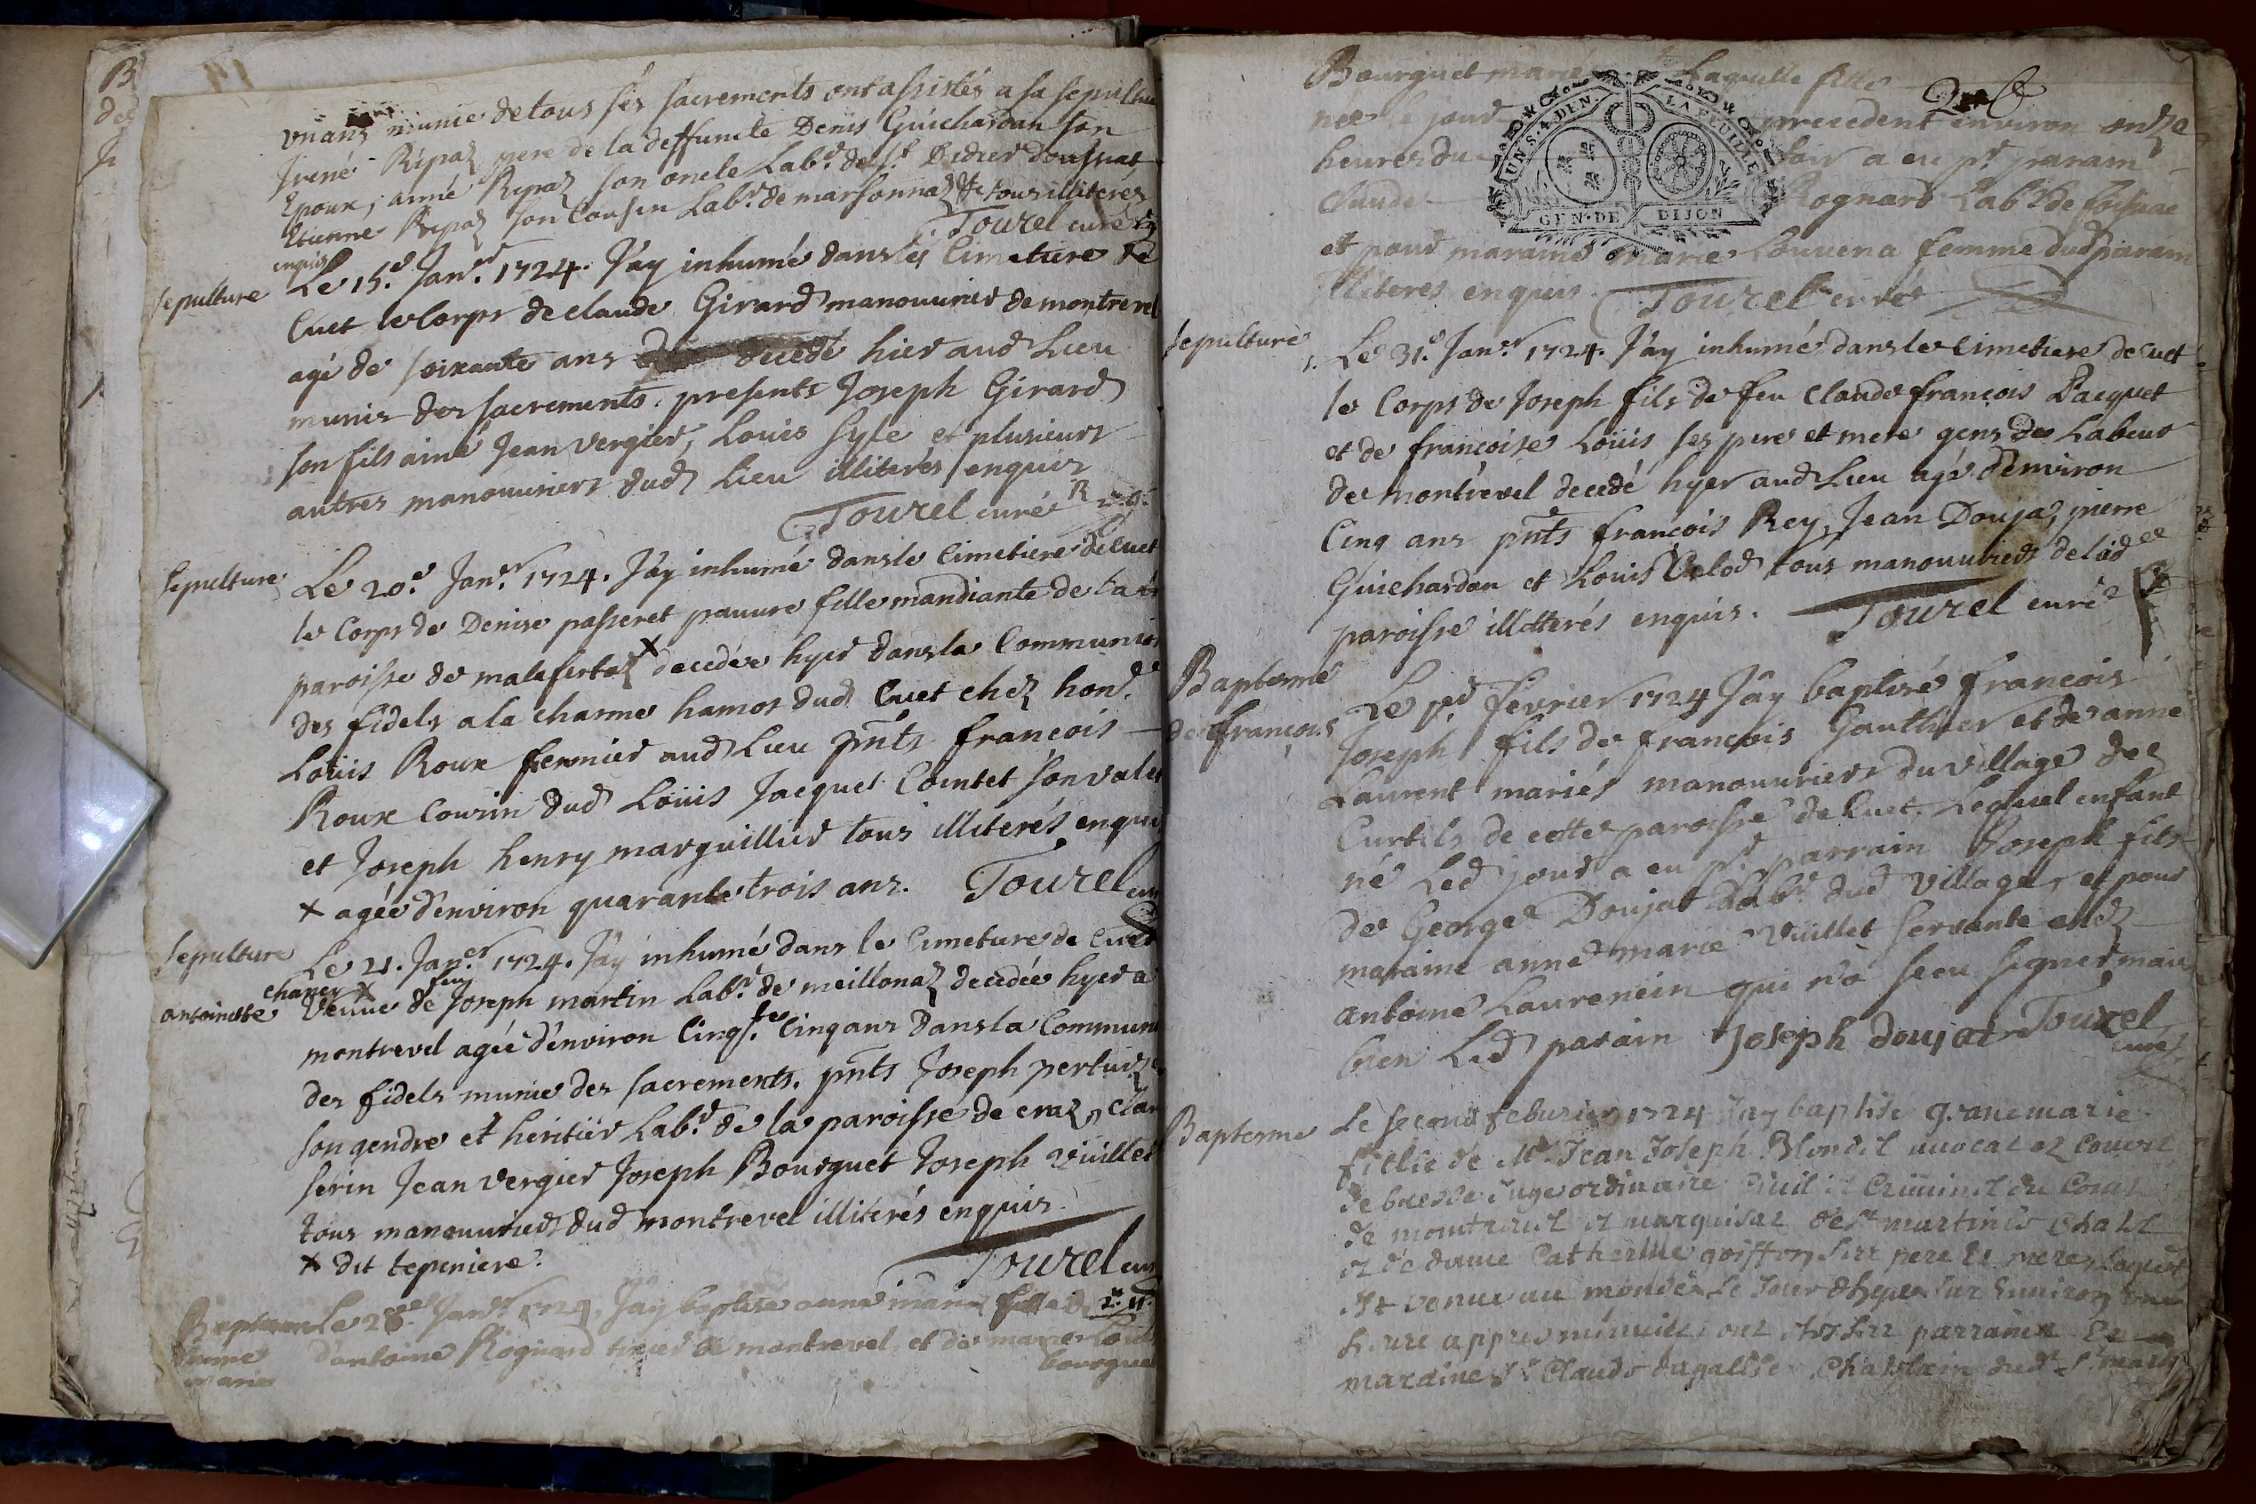 un an munie de tous ses sacrements ont assistés a sa sepultu
Irené Répaz pere de la deffuncte Denis Guichardan son
Epoux, aimé Repaz son oncle Labr. de St Didier Doussiat
Etienne Répaz son Cousin Labr. de marsonnaz tous illiterés
enquis Tourel curé
sepulture
Le 15e. Janer. 1724. J'ay inhumé dans le Cimetiere de
Cuet le Corps de claude Girard manouurier de montrevel
agé de soixante ans decedé hier aud Lieu
munis des sacrements. presents Joseph Girard
son fils ainé Jean vergier, Louis syle et plusieurs
autres manouuriers dud Lieu illiterés enquis
Tourel curé
Sepulture
Le 20e. Janr. 1724. J'ay inhumé dans le Cimetiere de Cuet
le Corps de Denise passeret pauure fille mandiante de la
paroisse de malafertaz x decedée hyer dans la Communion
des fidels a la charme hamos dud Cuet chez hond.
Loüis Roux fermier aud Lieu pnts françois
Roux Cousin dud Loüis Jacquet Cointet son valet
et Joseph henry marguillier tous illiterés enquis
x agée d'environ quarante trois ans. Tourel cur
Sepulture
antoinette
Le 21. Janer. 1724. J'ay inhumé dans le Cimetiere de Cuet
chanel x feu
Veuue de Joseph martin Labr. de meillonaz decedée hyer a
montrevel agée d'environ Cinqte Cinq ans dans la Commun
des fidels munie des sacrements. pnts Joseph pertuiz
son gendre et heritier Labr. de la paroisse de craz, clau
serin Jean vergier Joseph Bourguet Joseph vüillet
tous manouuriers dud montrevel illiterés enquis.
x dit tepiniere. Tourel cur
Bapteme
anne
marie
Le 28e Janr 1724. J'ay baptisé anne marie fille
d'antoine Rognard tixier de montrevel, et de marie Louise
bourguet
Bourguet mariés Laquelle fille
née le jour precedent environ onze
heures du soir a eu pr. parain
claude Rognard Labr de foissiat
et pour maraine marie Louvena femme dud parain
illiteres enquis. Tourel curé
UN S. 4. DEN. LA FEUILLE
GEN. DE DIJON
sepulture
Le 31e. Janer. 1724. J'ay inhumé dans le cimetiere de cuet
le Corps de Joseph fils de feu Claude françois Pacquet
et de françoise Loüis ses pere et mere gens de Labeur
de montrevel decedé hyer aud Lieu agé d'environ
Cinq ans pnts françois Rey, Jean Doujaz, pierre
Guichardan et Louis Velod tous manouuriers de lad
paroisse illiterés enquis. Tourel curé
Bapteme
de françois
Le per fevrier 1724 J'ay baptisé françois
Joseph fils de françois Gauthier et de anne
Laurent mariés manouuriers du village des
Curtils de cette paroisse de Cuet. Lequel enfant
né Led jour a eu pr. parrain Joseph fils
de George Doujat Labr. dud village, et pour
maraine anne marie vüillet servante chez
antoine Laurencin qui n'a sceu signer mais
bien Led parain Joseph doujat Tourel
curé
Bapteme
Le second feburier 1724 J'ay baptisé marie
fillie de Mr Jean Joseph Blondel auocat ez Cours
de bresse Juge ordinaire Ciuil et Criminel du Comté
de montreuel et marquisat de St martin le Chatel
et de dame Catherine goiffon ses pere et mere, Laquelle
est venue au monde Le Jour d'hyer sur Enuiron une
heure appres minuit, ont estes ses parrain Et
maraine Sr Claude Chatelain dudt St martin